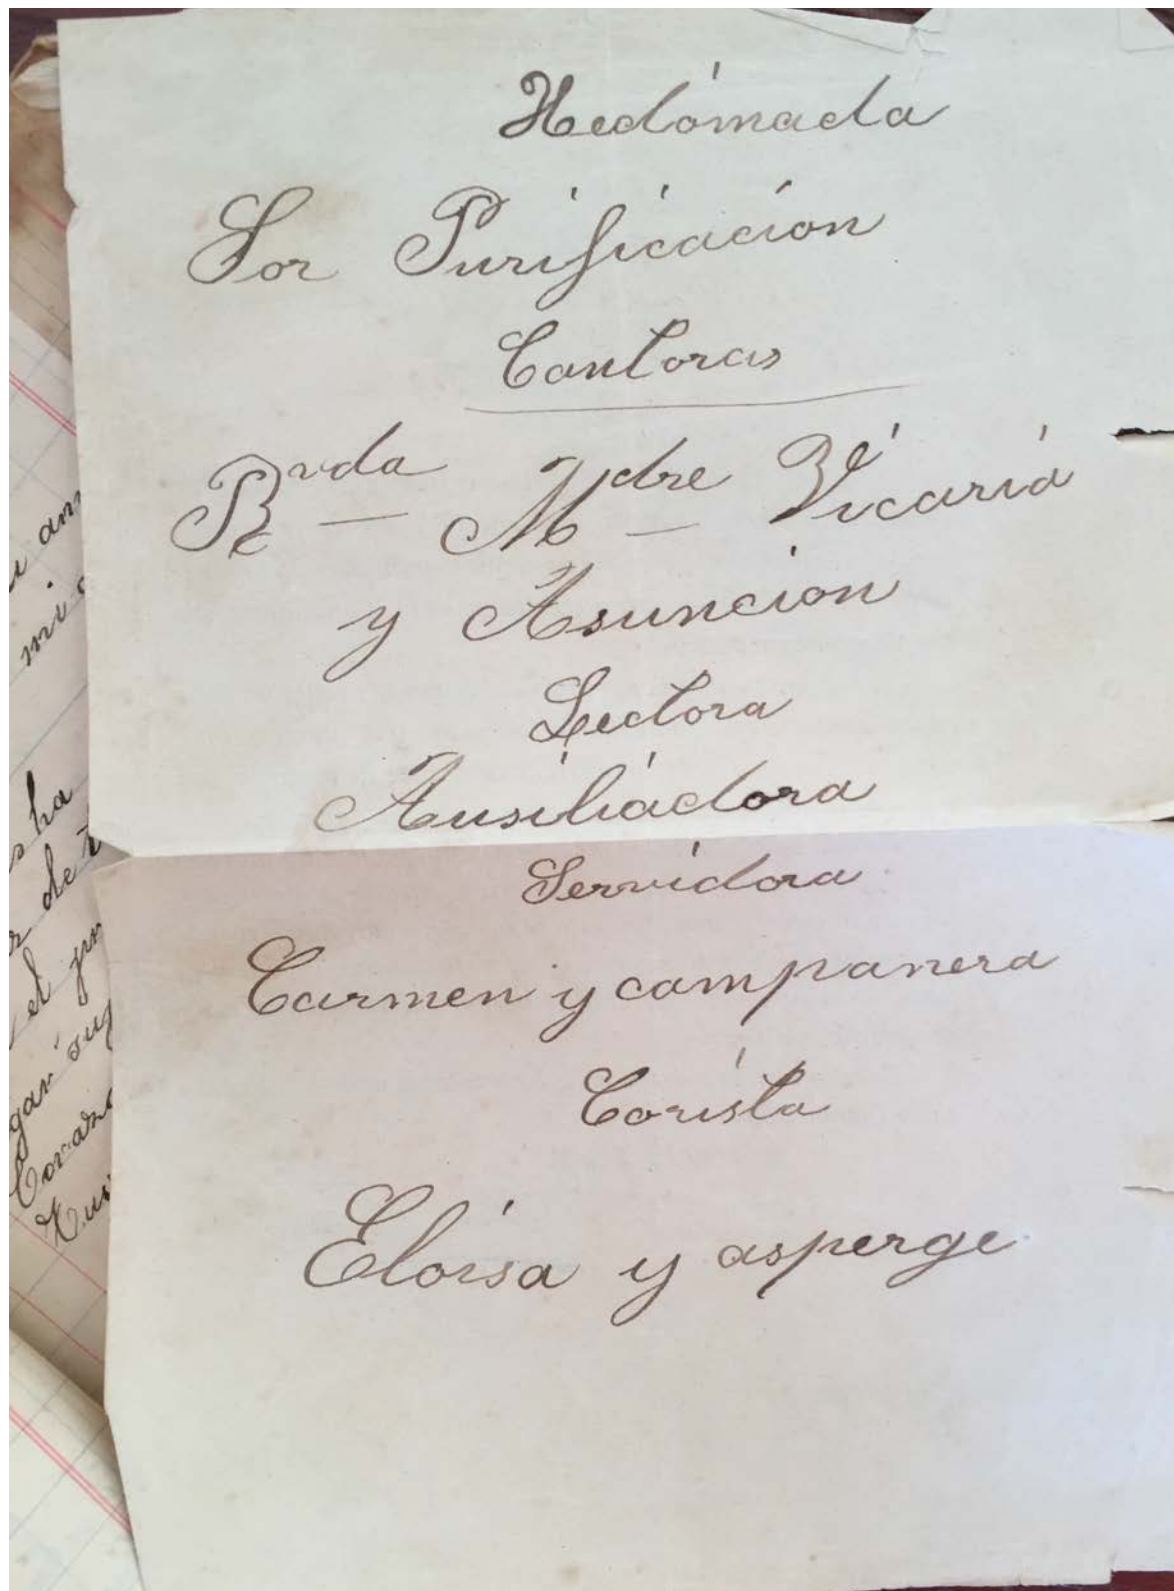 Hedómada
Sor Purificacion
Cantoras
Rvda — Mdre — Vicaria
y Asuncion
Lectora
Ausiliadora
Servidora
Carmen y campanera
Corista
Eloisa y asperge